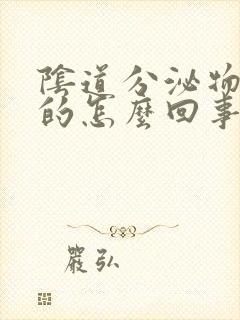 陰道分泌物
的怎麼回事
嚴弘